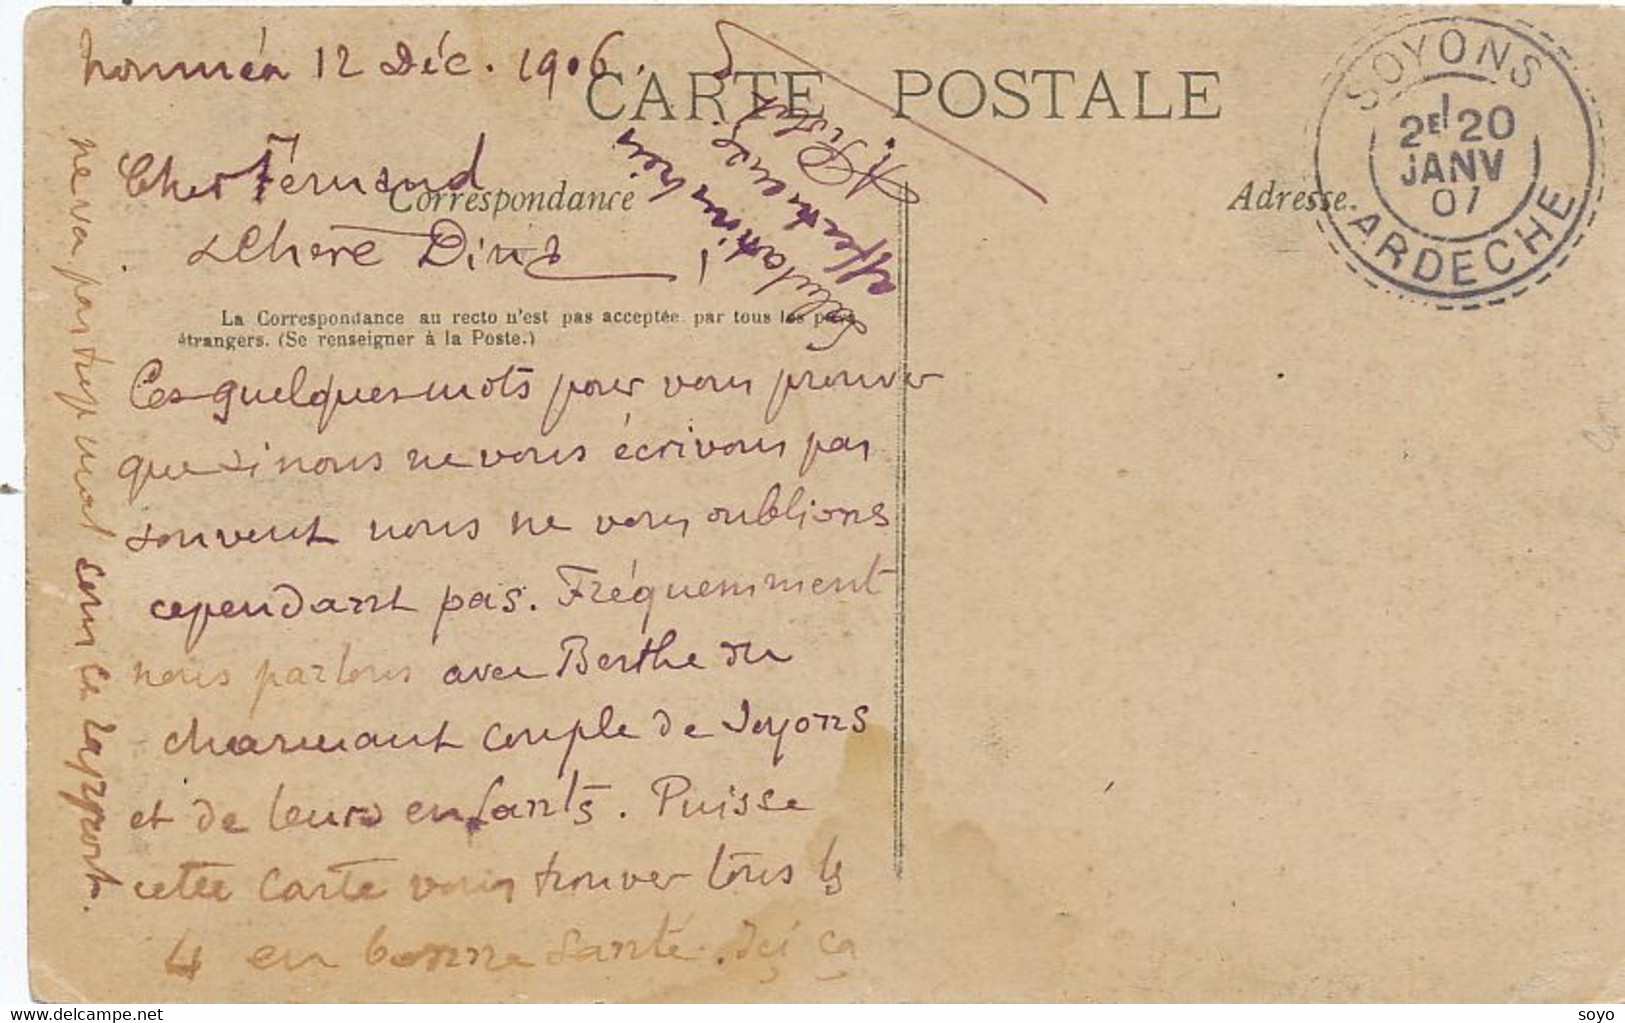 Nouméa 12 Déc. 1906.
CARTE POSTALE
Correspondance
Adresse.
SOYONS
2E 20
JANV
07
ARDECHE
Cher Fernand
& Chère Dina !
La Correspondance au recto n'est pas acceptée par tous les pays
étrangers. (Se renseigner à la Poste.)
Ces quelques mots pour vous prouver
que si nous ne vous écrivons pas
souvent nous ne vous oublions
cependant pas. Fréquemment
nous parlons avec Berthe du
charmant couple de Soyons
et de leurs enfants. Puisse
cette carte vous trouver tous les
4 en bonne santé. Ici ça
ne va pas trop mal sous ce rapport.
Salutations bien
affectueuses
soyo